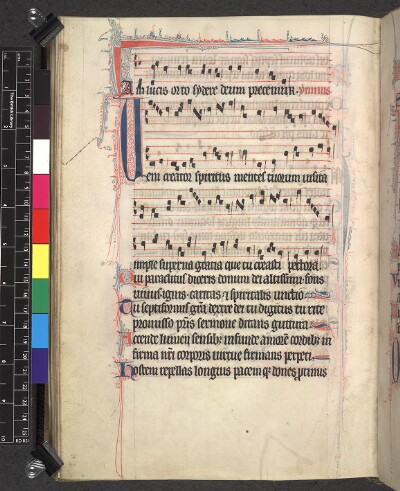 Iam lucis orto sydere deum precemur. ymnus
Veni creator spiritus mentes tuorum visita
imple superna gratia que tu creasti pectora
Qui paraclitus diceris donum dei altissimi fons
vivus ignis caritas & spiritalis unctio
Tu septiformis gr̄a dextre dei tu digitus tu rite
promisso pr̄is sermone ditans guttura
Accende lumen sensib; infunde amorē cordib; in
firma nr̄i corporis virtute firmans perpeti
Hostem repellas longius pacem q; dones protinus